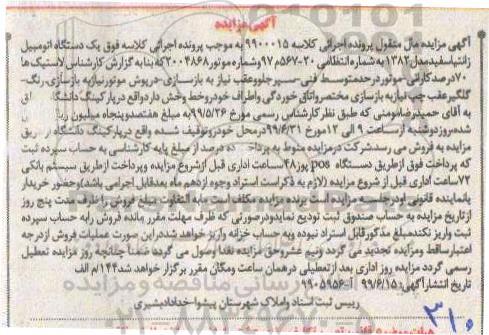 آگهی مزایده
آگهی مزایده مال منقول پرونده اجرائی کلاسه ۹۹۰۰۰۱۵ به موجب پرونده اجرائی کلاسه فوق یک دستگاه اتومبیل
زانتیا سفید مدل ۱۳۸۲ به شماره انتظامی ۳۰-۵۶۷م۹۷ وشماره موتور ۳۰۰۴۸۶۸ که بنا به گزارش کارشناس لاستیک ها
۷۰درصد کارائی-موتور در حد متوسط فنی-سپر جلو وعقب نیاز به بازسازی-درپوش موتور نیاز به بازسازی، رنگ-
گلگیر عقب چپ نیاز به بازسازی مختصر واتاق خوردگی واطراف خودرو خط وخش دار واقع در پارکینگ دانشگاه
به آقای حمیدرضا مومنی که طبق نظر کارشناس رسمی مورخ ۹۹/۵/۲۶ به مبلغ هفتصد و پنجاه میلیون ریال
شده روز دوشنبه از ساعت ۹ الی ۱۲ مورخ ۹۹/۶/۳۱ در محل خودرو توقیف شده واقع در پارکینگ دانشگاه از طریق
مزایده به فروش می رسد. شرکت در مزایده منوط به پرداخت ده درصد از مبلغ پایه کارشناسی به حساب سپرده ثبت
که پرداخت فوق از طریق دستگاه pos پوز ۴۸ ساعت اداری قبل از شروع مزایده وپرداخت از طریق سیستم بانکی
۷۲ ساعت اداری قبل از شروع مزایده (لازم به ذکر است اسناد وجوه از دهم ماه بعد قابل اجرا می باشد) وحضور خریدار
یا نماینده قانونی او در جلسه مزایده است برنده مزایده مکلف است مابه التفاوت مبلغ فروش را ظرف مدت پنج روز
از تاریخ مزایده به حساب صندوق ثبت تودیع نماید و در صورتی که ظرف مهلت مقرر مانده فروش را به حساب سپرده
ثبت واریز نکند مبلغ مذکور قابل استرداد نبوده وبه حساب خزانه واریز خواهد شد در این صورت عملیات فروش از درجه
اعتبار ساقط ومزایده تجدید می گردد ونیم عشر وحق مزایده نقدا وصول می گردد ضمنا چنانچه روز مزایده تعطیل
رسمی گردد مزایده روز اداری بعد از تعطیلی در همان ساعت ومکان مقرر برگزار خواهد شد ۱۴۴/م الف
تاریخ انتشار آگهی: ۹۹/۶/۱۵ ۱-۹۹۰۵۹۵۶
رییس ثبت اسناد واملاک شهرستان پیشوا- خداداد بشیری
۳۱۰